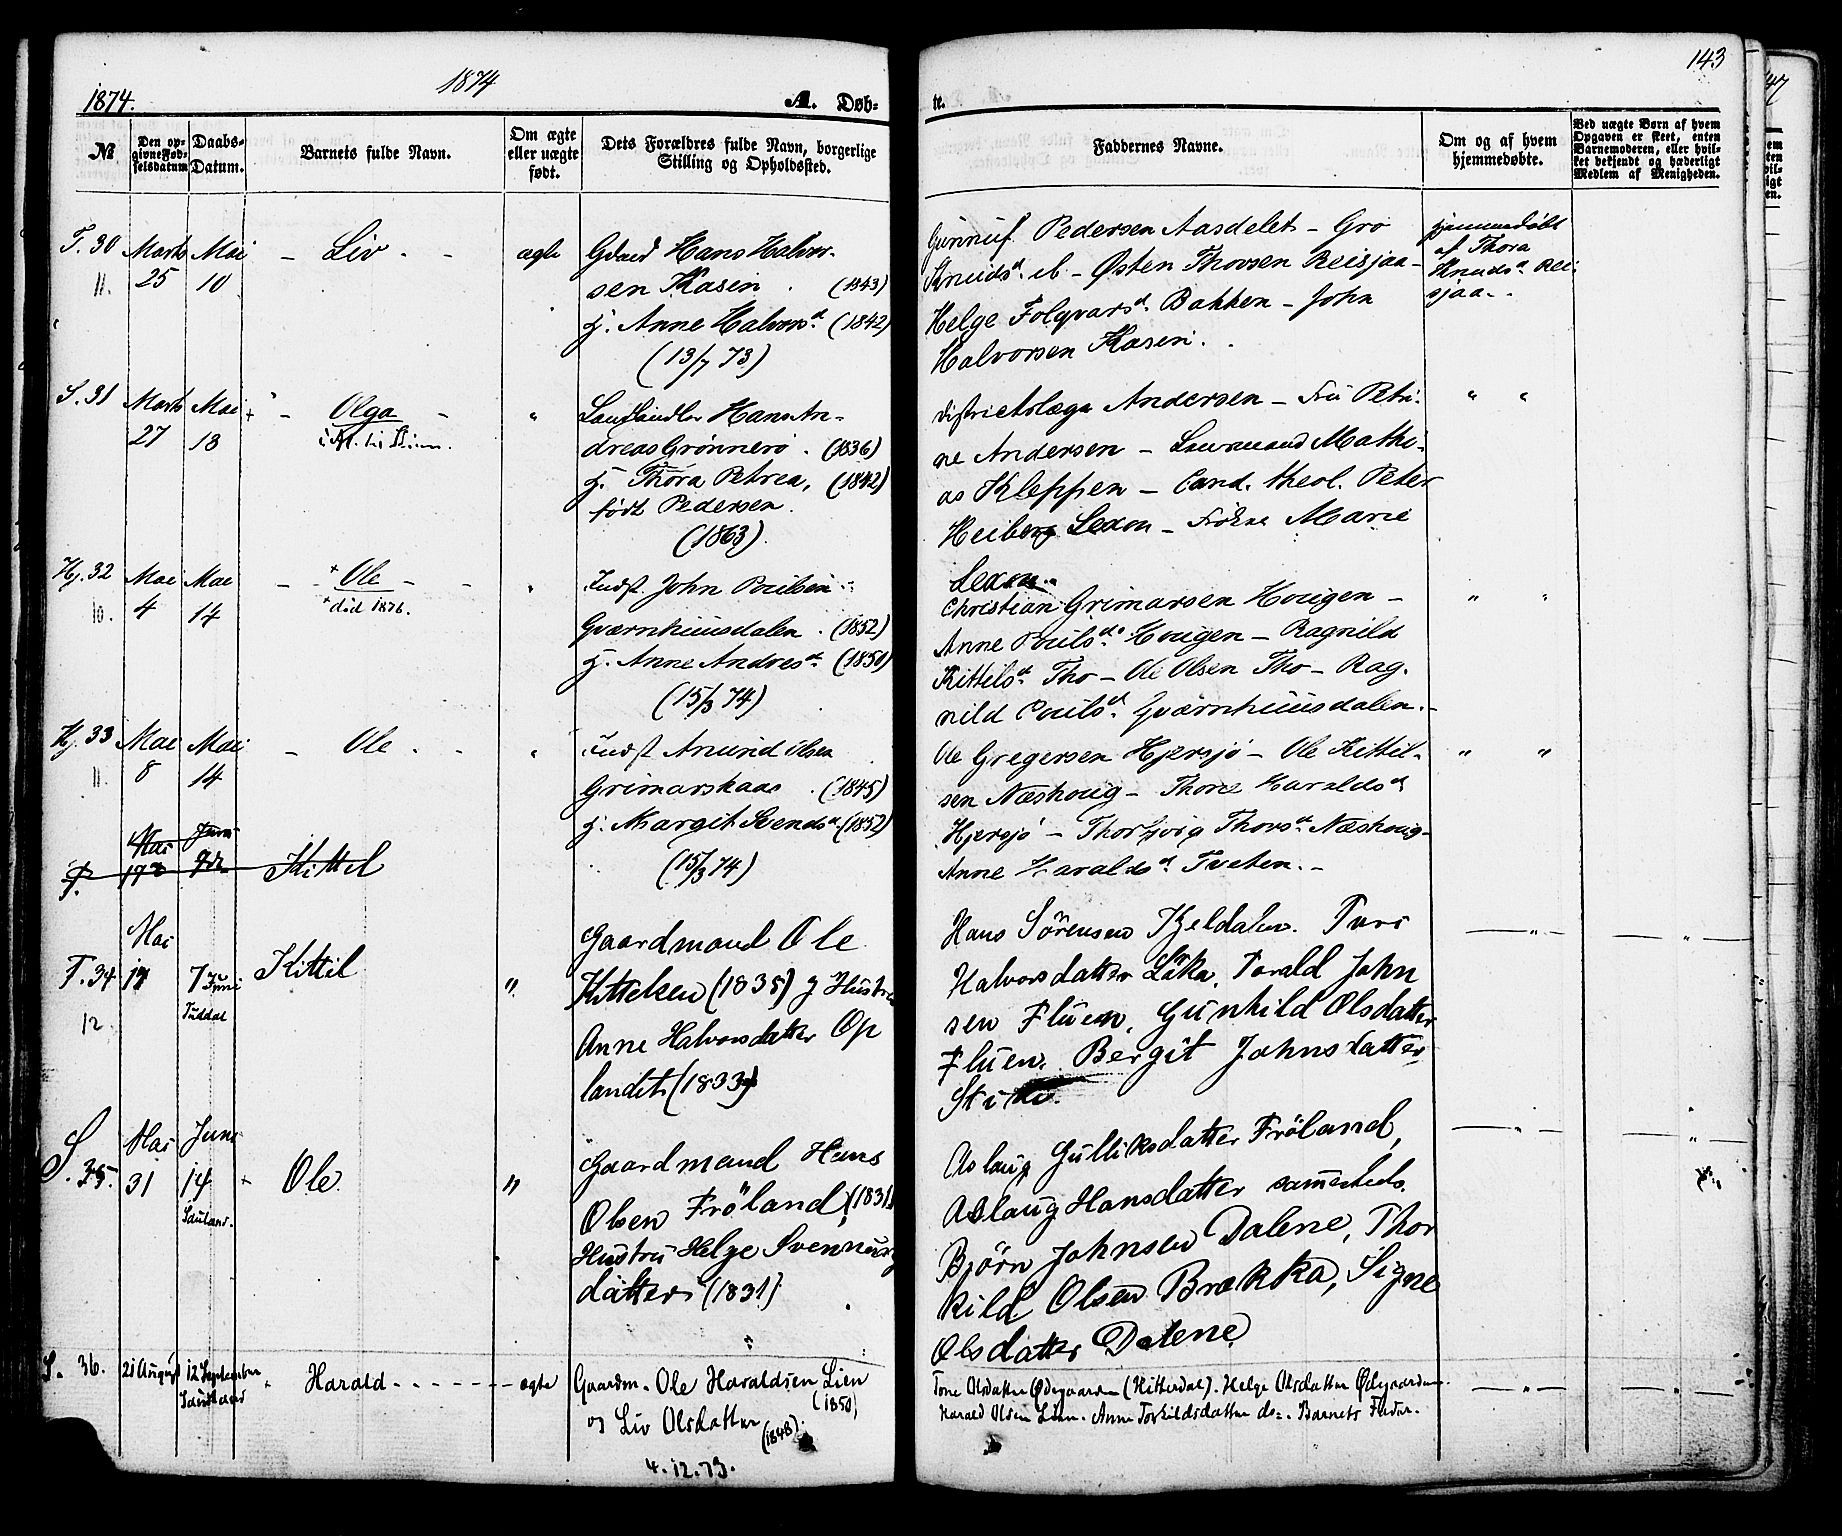 1874.
1874
A. Døb-
№
Den op-
givne Fød-
selsdatum
Daabs-
Datum.
Barnets fulde Navn.
Om ægte
eller uægte
født.
Dets Forældres fulde Navn, borgerlige
Stilling og Opholdssted.
T. 30
11.
Marts
25
Mai
10
Liv
ægte
Gdmd Hans Halvor-
sen Kasin (1843)
H. Anne Halvorsd (1842)
(13/7 73)
S. 31
Marts
27
Mai
18
Olga
"
Landhandler Hans An-
dreas Grønnerø (1836)
H. Thora Petrea, (1842)
født Pedersen.
(1863).
Hj. 32
10.
Mai
4
Mai
14
+ Ole
+ død 1876.
"
Indst. John Poulsen
Gværnhuusdalen (1852)
H. Anne Andresd (1850)
(15/3 74)
Hj. 33
11.
Mai
8
Mai
14
Ole
"
Indst Amund Olsen
Grimarskaas (1845)
H. Margit Svendsd. (1852)
(15/3 74)
T.
Mai
17
Juni
7de
Kittel
T. 34
12
Mai
17
7 Juni
Tuddal
Kittil
"
Gaardmand Ole
Kittelsen (1835) og Hustru
Anne Halvorsdatter Op
landet (1833)
S. 35.
Mai
31
Juni
14
Sauland.
Ole
"
Gaardmand Hans
Olsen Fröland, (1831)
Hustru Helge Svennung
datter (1831)
S. 36.
21 August
12 September
Sauland
Harald
ægte
Gaardm. Ole Haraldsen Lien
(1850)
og Liv Olsdatter (1848)
4.12.73.
143
te.
Faddernes Navne.
Om og af hvem
hjemmedøbte.
Ved uægte Børn af hvem
Opgaven er skeet, enten
Barnemoderen, eller hvil-
ket bekjendt og hæderligt
Medlem af Menigheden.
Gunnuf Pedersen Aasdelet - Gro
Knudsd. ib - Østen Thovsen Reisjaa-
Helge Folqvarsd. Bakken - John
Halvorsen Kasin.
hjemmedøbt
af Thora
Knudsd. Rei-
sjaa.
Districtslæge Andersen - Fru Petri-
ne Andersen - Lensmand Mathi-
as Kleppen - Cand. theol. Peter
Heiberg Lexow - Frøkne Marie
Lexow.
" "
Christian Grimarsen Hougen -
Anne Poulsd. Hougen - Ragnild
Kittilsd. Tho - Ole Olsen Tho - Rag-
nild Poulsd. Gværnhuusdalen.
" "
Ole Gregersen Hjersjø - Ole Kittil-
sen Næshoug - Thone Haraldsd
Hjersjø - Thorbjørg Thorsd. Næshoug-
Anne Haraldsd Tveten.
" "
Hans Sörensen Kjeldalen. Turi
Halvorsdatter Låka. Torald John
sen Fluen. Gunhild Olsdatter
Fluen. Bergit Johnsdatter
" "
Aslaug Gulliksdatter Fröland,
Aslaug Hansdatter sammesteds.
Björn Johnsen Dalene, Thor
kild Olsen Brækka, Signe
Olsdatter Dalene.
" "
Tone Olsdatter Ødegaarden (Hitterdal). Helge Olsdatter Ødegaarden.
Harald Olsen Lien. Anne Torkildsdatter do. Barnets Fader.
" "